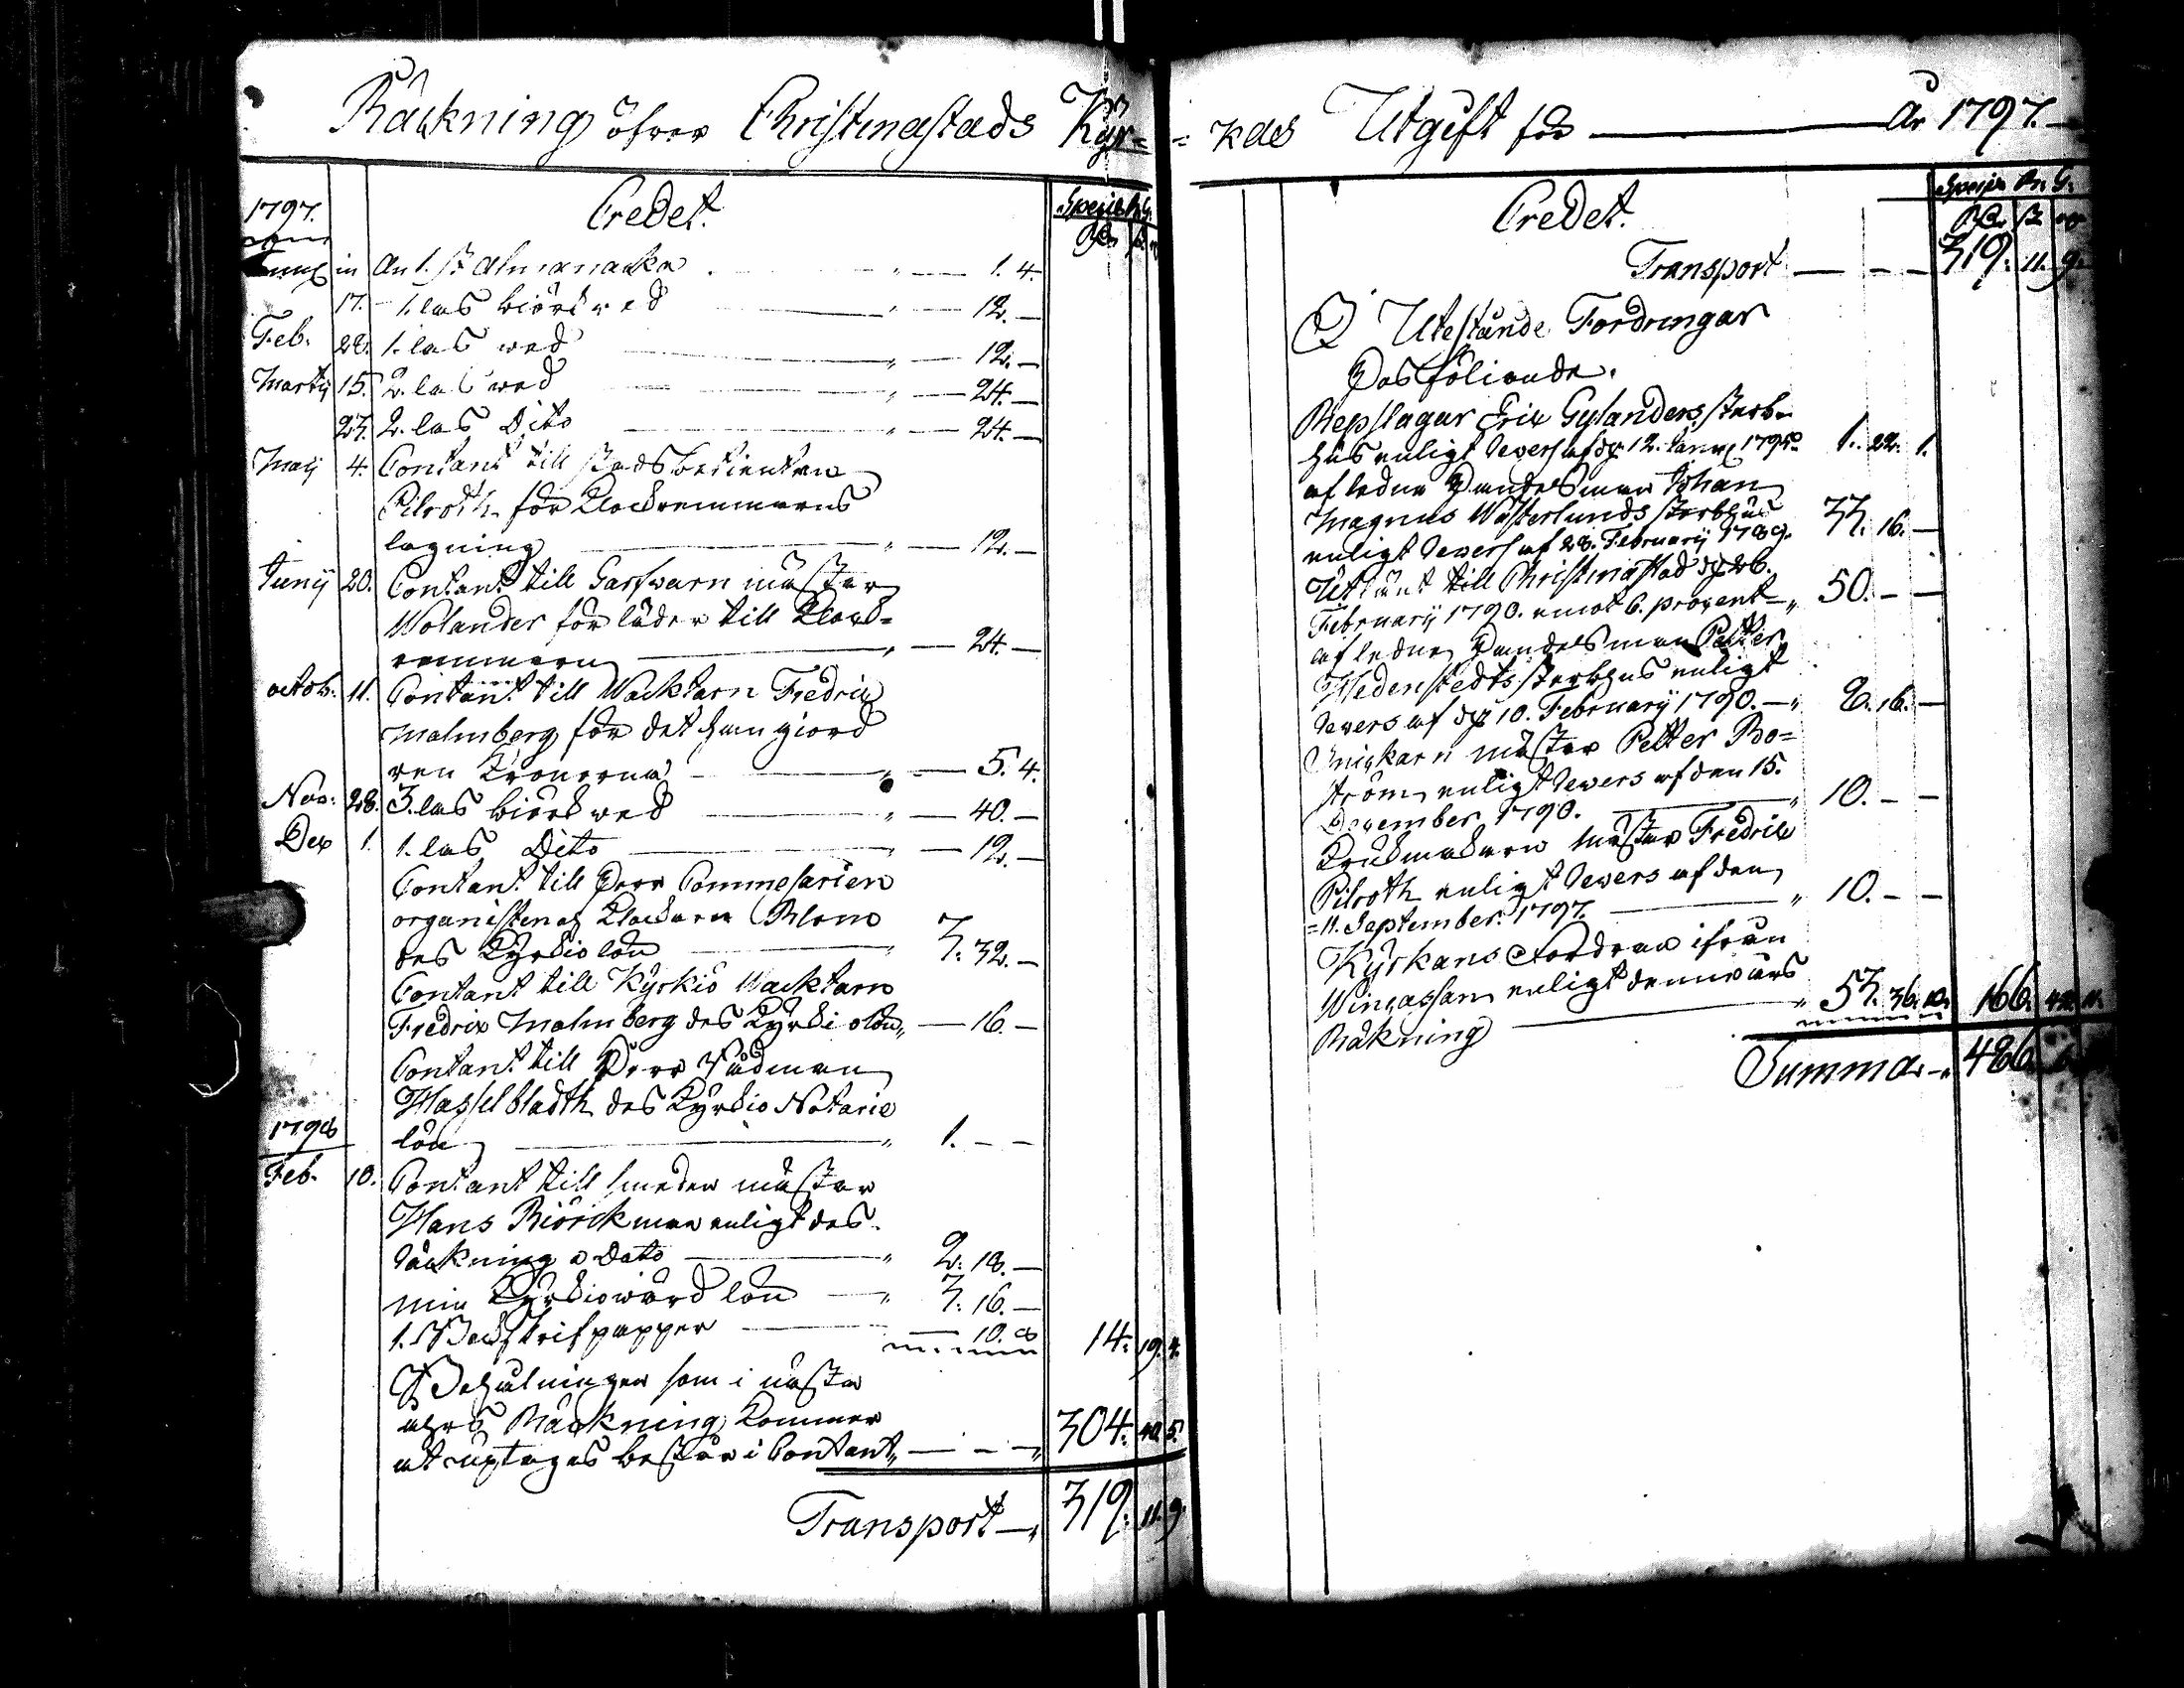 Räckning öfver Christinestads Kyr=
1797. Credet. Specie R: G:
Rdr ß rs
Januarij in An 1. st Almanacka — 1. 4.
17. — 1. las biörkved — 12. —
Feb. 28. 1. las wed — 12. —
Martij 15. 2. las wed — 24. —
27. 2. las Dito — 24. —
Maij 4. Contant till stadsbetienten
Pilroth för Klockremmarnas
lagning — 12. —
Junij 20. Contant till Garfvarn mäster
Wolander för läder till Klock=
remmarn — 24. —
octob. 11. Contant till Wacktarn Fredric
Malmberg för det han giord
ren Kronorna — 5. 4.
Nov. 28. 3. las biörk wed — 40. —
Dec 1. 1. las Dito — 12. —
Contant till Herr Commesarien
organisten och Klockarn Blom
des Kyrkio lön — 3. 32. —
Contant till Kyrkio Wacktarn
Fredric Malmberg des Kyrkio lön — 16. —
Contant till Herr Rådman
Hasselbladth des Kyrkio Notarie
lön — 1. — —
1798
Feb. 10. Contant till smeden mäster
Hans Biörckman enligt des
Räckning a Dato — 2. 18. —
min Kyrkiowärd lön — 3. 16. —
1. Bock skrifpapper — 10. 8 14. 19. 4.
Behålningen som i nästa
åhrs Räckning kommer
at uptagas består i Contant — — — 304. 40. 5.
Transport — 319. 11. 9.
= kas Utgift för — År 1797. —
Credet. Specie R: G:
Rdr ß rs
Transport — — — 319. 11. 9.
Utestånde Fordringar
Som följande.
Repslagar Eric Gylanders sterb-
hus enligt Revers af d. 12. Januarij 1795 1. 22. 1.
afledne Handelsman Johan
Magnus Wästerlunds sterbhus
enligt Revers af 28. Februarij 1789. 33. 16. —
Utlånt till Christinestad d. 26.
Februarij 1790. emot 6. procent — 50. — —
afledne Handelsman Petter
Hedenstedts sterbhus enligt
Revers af d. 10. Februarij 1790. — 8. 16. —
Snickarn mäster Petter Bo=
ström enligt Revers af den 15.
December 1790. — 10. — —
Krukmakarn mäster Fredric
Pilroth enligt Revers af den
= 11. September. 1797. — 10. — —
Kyrkans Fordran ifrån
Wincassan enligt dennwars
Räkning — 53. 36. 10. 166. 42. 11.
Summa — 486. 6